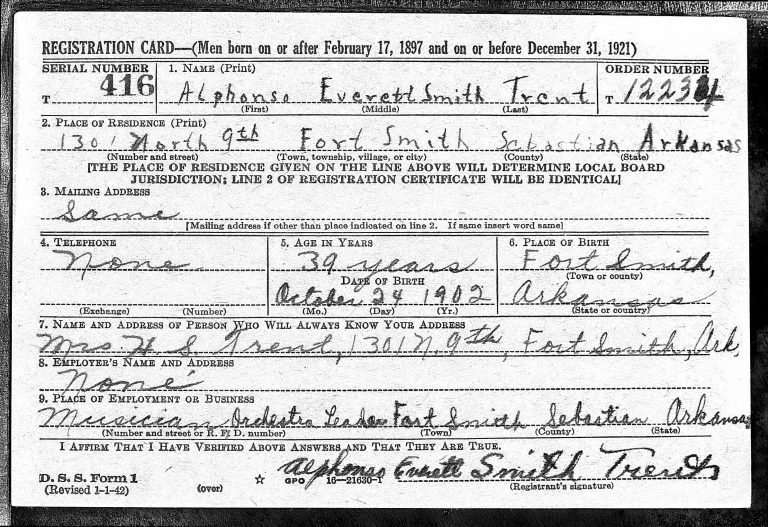 REGISTRATION CARD—(Men born on or after February 17, 1897 and on or before December 31, 1921)
SERIAL NUMBER 1. NAME (Print) ORDER NUMBER
T 416 Alphonso Everett Smith Trent T 12234
(First) (Middle) (Last)
2. PLACE OF RESIDENCE (Print)
1301 North 9th Fort Smith Sebastian Arkansas
(Number and street) (Town, township, village, or city) (County) (State)
[THE PLACE OF RESIDENCE GIVEN ON THE LINE ABOVE WILL DETERMINE LOCAL BOARD
JURISDICTION; LINE 2 OF REGISTRATION CERTIFICATE WILL BE IDENTICAL]
3. MAILING ADDRESS
Same
[Mailing address if other than place indicated on line 2. If same insert word same]
4. TELEPHONE 5. AGE IN YEARS 6. PLACE OF BIRTH
None 39 years Fort Smith,
(Town or county)
DATE OF BIRTH
October 24 1902 Arkansas
(Exchange) (Number) (Mo.) (Day) (Yr.) (State or country)
7. NAME AND ADDRESS OF PERSON WHO WILL ALWAYS KNOW YOUR ADDRESS
Mrs. H. S. Trent, 1301 N. 9th, Fort Smith, Ark.
8. EMPLOYER'S NAME AND ADDRESS
None
9. PLACE OF EMPLOYMENT OR BUSINESS
Musician Orchestra Leader Fort Smith Sebastian Arkansas
(Number and street or R. F. D. number) (Town) (County) (State)
I AFFIRM THAT I HAVE VERIFIED ABOVE ANSWERS AND THAT THEY ARE TRUE.
Alphonso Everett Smith Trent
D. S. S. Form 1 GPO 16—21630-1
(Revised 1-1-42) (over) (Registrant's signature)